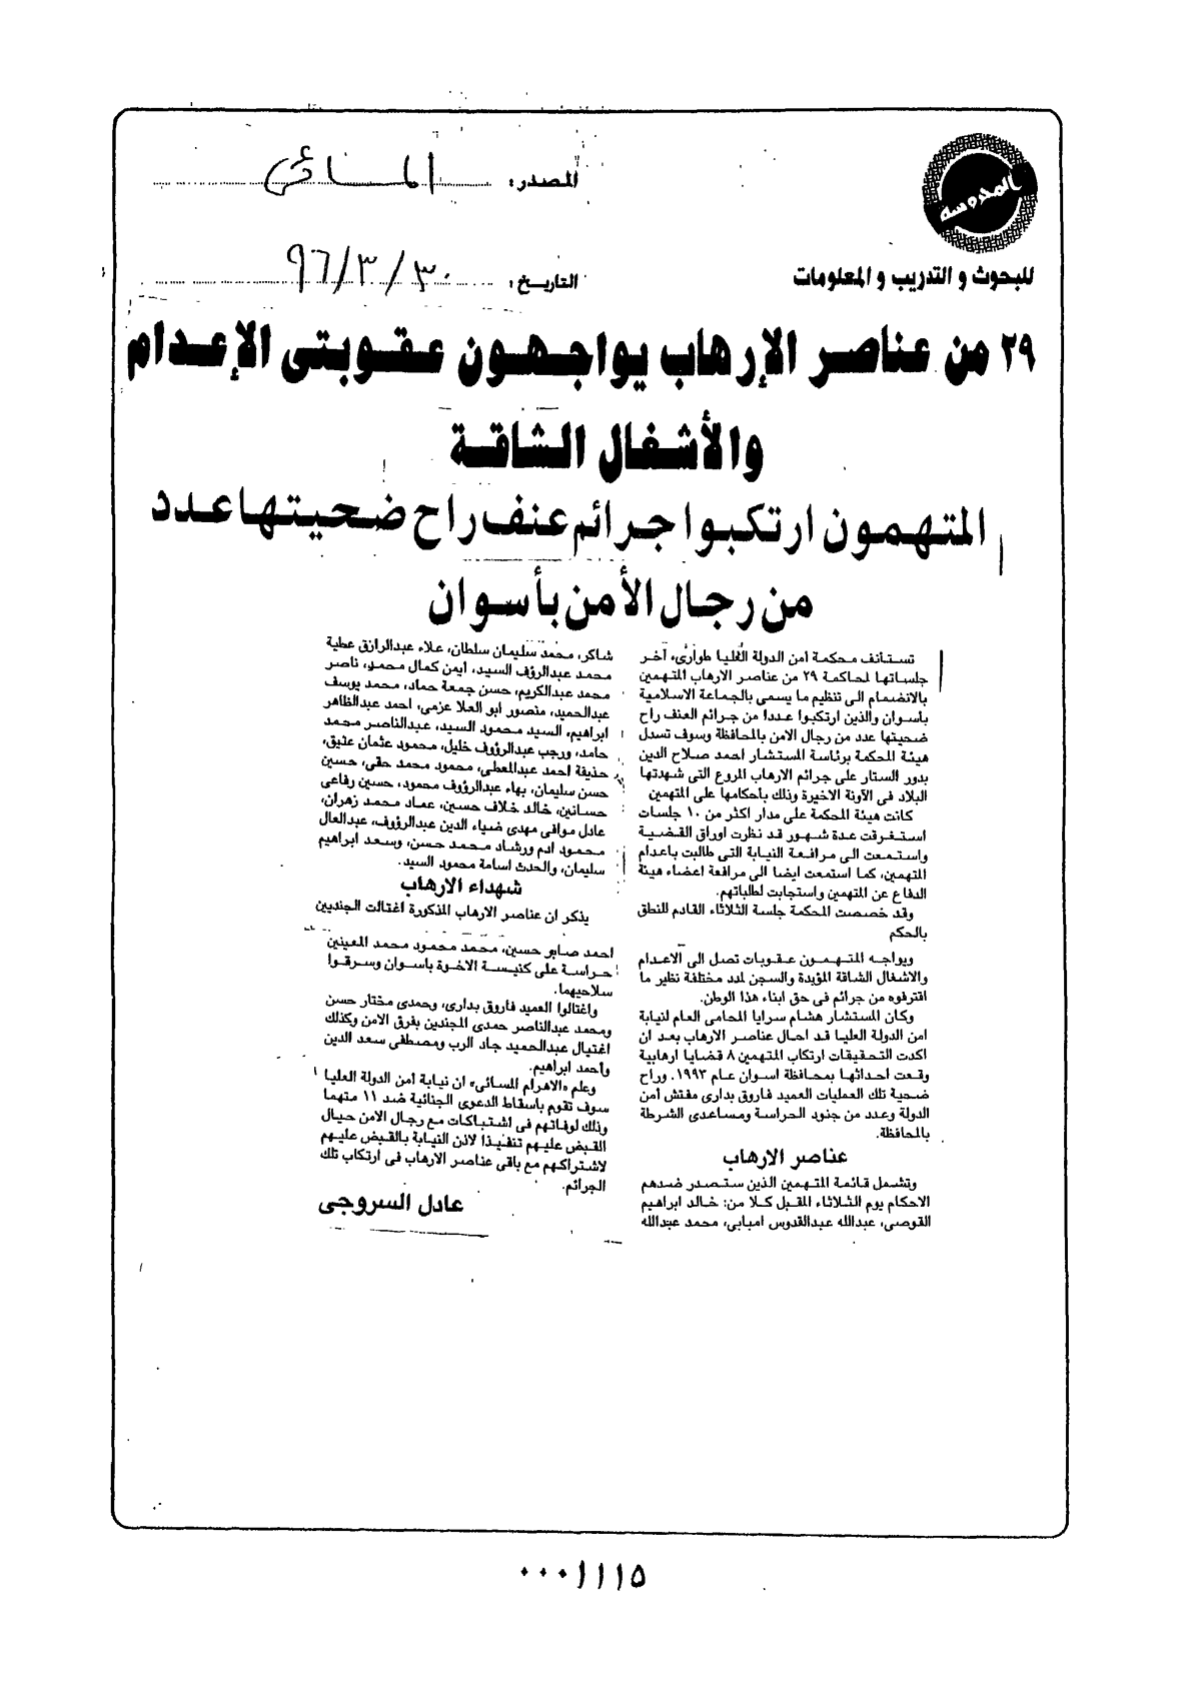 المحروسة
المصدر: المسائى
للبحوث و التدريب و المعلومات
التاريخ: ٩٦/٣/٣٠
٢٩ من عناصر الإرهاب يواجهون عقوبتى الإعدام
والأشغال الشاقة
المتهمون ارتكبوا جرائم عنف راح ضحيتها عدد
من رجال الأمن بأسوان
تستانف محكمة امن الدولة العليا طوارئ، آخر
جلساتها لمحاكمة ٢٩ من عناصر الارهاب المتهمين
بالانضمام الى تنظيم ما يسمى بالجماعة الاسلامية
باسوان والذين ارتكبوا عددا من جرائم العنف راح
ضحيتها عدد من رجال الامن بالمحافظة وسوف تسدل
هيئة المحكمة برئاسة المستشار احمد صلاح الدين
بدور الستار على جرائم الارهاب المروع التى شهدتها
البلاد فى الآونة الاخيرة وذلك باحكامها على المتهمين
كانت هيئة المحكمة على مدار اكثر من ١٠ جلسات
استغرقت عدة شهور قد نظرت اوراق القضية
واستمعت الى مرافعة النيابة التى طالبت باعدام
المتهمين، كما استمعت ايضا الى مرافعة اعضاء هيئة
الدفاع عن المتهمين واستجابت لطلباتهم.
وقد خصصت المحكمة جلسة الثلاثاء القادم للنطق
بالحكم
ويواجه المتهمون عقوبات تصل الى الاعدام
والاشغال الشاقة المؤبدة والسجن لمدد مختلفة نظير ما
اقترفوه من جرائم فى حق ابناء هذا الوطن.
وكان المستشار هشام سرايا المحامى العام لنيابة
امن الدولة العليا قد احال عناصر الارهاب بعد ان
اكدت التحقيقات ارتكاب المتهمين ٨ قضايا ارهابية
وقعت أحداثها بمحافظة اسوان عام ١٩٩٣. وراح
ضحية تلك العمليات العميد فاروق بدارى مفتش أمن
الدولة وعدد من جنود الحراسة ومساعدى الشرطة
بالمحافظة.
عناصر الارهاب
وتشمل قائمة المتهمين الذين ستصدر ضدهم
الاحكام يوم الثلاثاء المقبل كلا من: خالد ابراهيم
القوصى، عبدالله عبدالقدوس امبابى، محمد عبدالله
شاكر، محمد سليمان سلطان، علاء عبدالرازق عطية
محمد عبدالرؤف السيد، ايمن كمال محمد، ناصر
محمد عبدالكريم، حسن جمعة حماد، محمد يوسف
عبدالحميد، منصور ابو العلا عزمى، احمد عبدالظاهر
ابراهيم، السيد محمود السيد، عبدالناصر محمد
حامد، ورجب عبدالرؤوف خليل، محمود عثمان عتيق،
حذيفة احمد عبدالمعطى، محمود محمد حقى، حسين
حسن سليمان، بهاء عبدالرؤوف محمود، حسين رفاعى
حسانين، خالد خلاف حسين، عماد محمد زهران،
عادل موافى مهدى ضياء الدين عبدالرؤوف، عبدالعال
محمود ادم ورشاد محمد حسن، وسعد ابراهيم
سليمان، والحدث اسامة محمود السيد.
شهداء الارهاب
يذكر ان عناصر الارهاب المذكورة اغتالت الجنديين
احمد صابر حسين، محمد محمود محمد المعينين
حراسة على كنيسة الاخوة باسوان وسرقوا
سلاحيهما.
واغتالوا العميد فاروق بدارى، وحمدى مختار حسن
ومحمد عبدالناصر حمدى المجندين بفرق الامن وكذلك
اغتيال عبدالحميد جاد الرب ومصطفى سعد الدين
وأحمد ابراهيم.
وعلم «الاهرام المسائى» ان نيابة أمن الدولة العليا
سوف تقوم باسقاط الدعوى الجنائية ضد ١١ متهما
وذلك لوفاتهم فى اشتباكات مع رجال الامن حيال
القبض عليهم تنفيذا لاذن النيابة بالقبض عليهم
لاشتراكهم مع باقى عناصر الارهاب فى ارتكاب تلك
الجرائم.
عادل السروجى
٠٠٠١١١٥